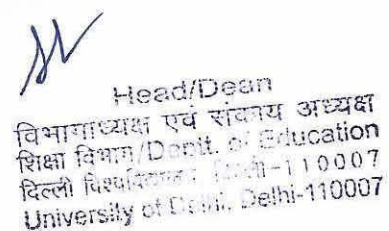 Head/Dean
विभागाध्यक्ष एवं संकाय अध्यक्ष
शिक्षा विभाग/Deptt. of Education
दिल्ली -110007
University of Delhi, Delhi-110007